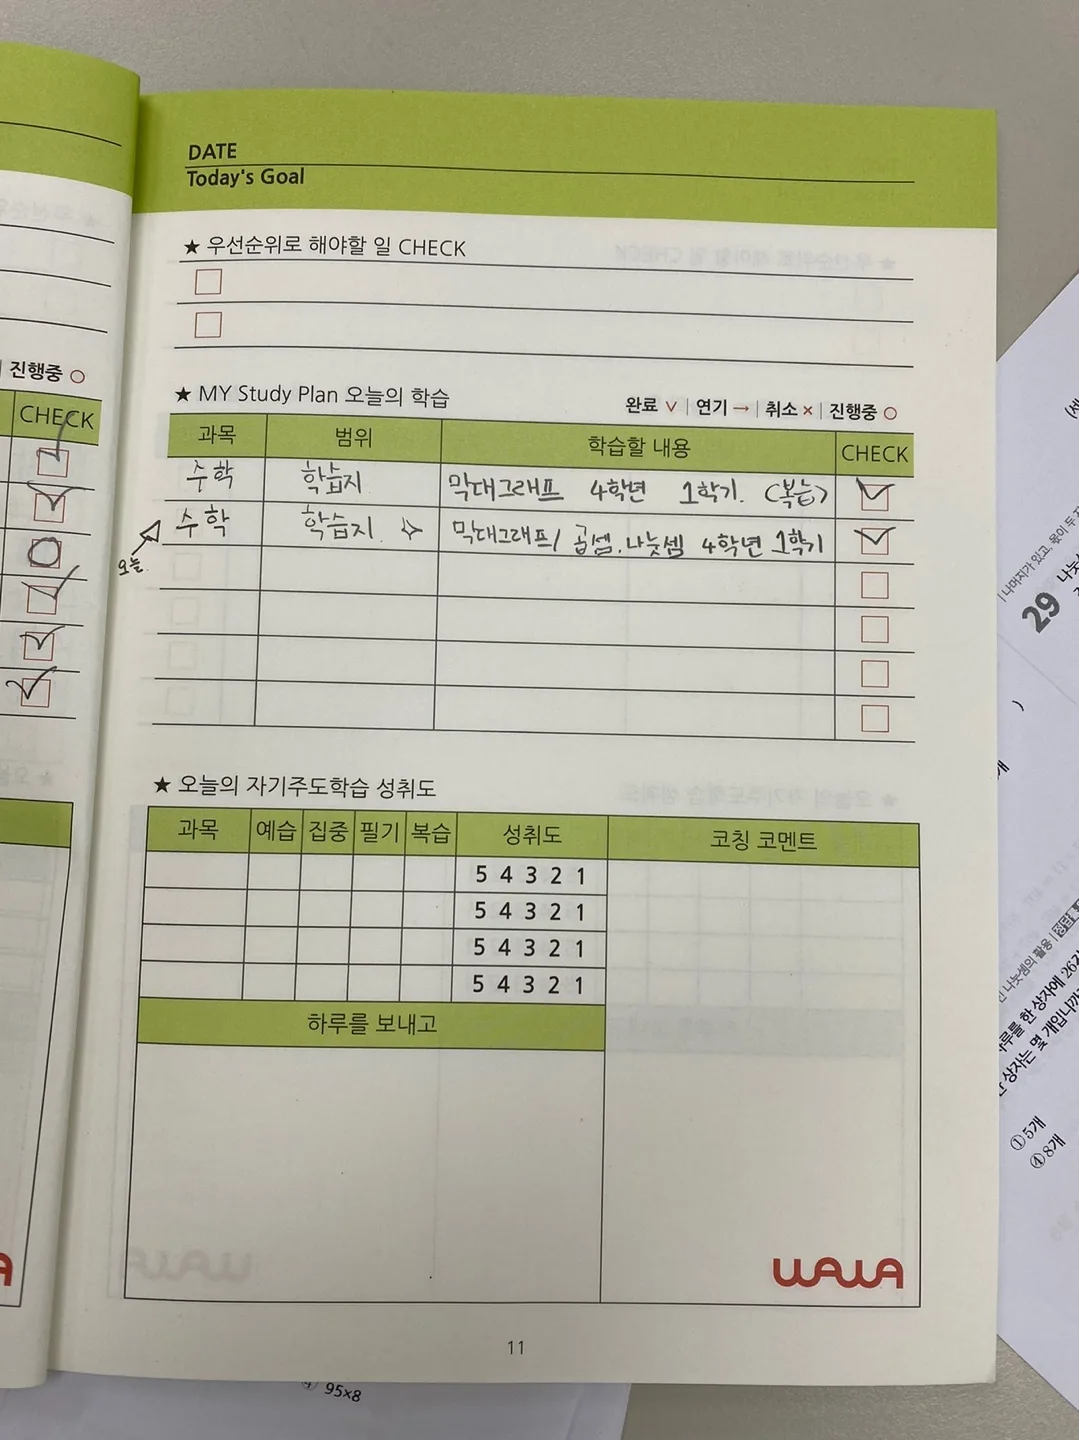 DATE
Today's Goal
★ 우선순위로 해야할 일 CHECK
★ MY Study Plan 오늘의 학습
완료 ∨ | 연기 → | 취소 × | 진행중 ○
과목 범위 학습할 내용 CHECK
수학 학습지 막대그래프 4학년 1학기. (복습)
수학 학습지. 막대그래프/ 곱셈.나눗셈 4학년 1학기
오늘.
★ 오늘의 자기주도학습 성취도
과목 예습 집중 필기 복습 성취도 코칭 코멘트
5 4 3 2 1
5 4 3 2 1
5 4 3 2 1
5 4 3 2 1
하루를 보내고
WAWA
11
진행중 ○
CHECK
④ 95×8
29
나머지가 있고, 몫이 두
나눗셈의 활용
한 상자에 26
상자는 몇 개입니까
①5개
④8개